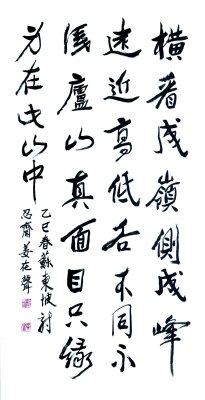 橫看成嶺側成峰
遠近高低各不同不
識廬山真面目只緣
身在此山中
乙巳春蘇東坡詩
齋姜在聲